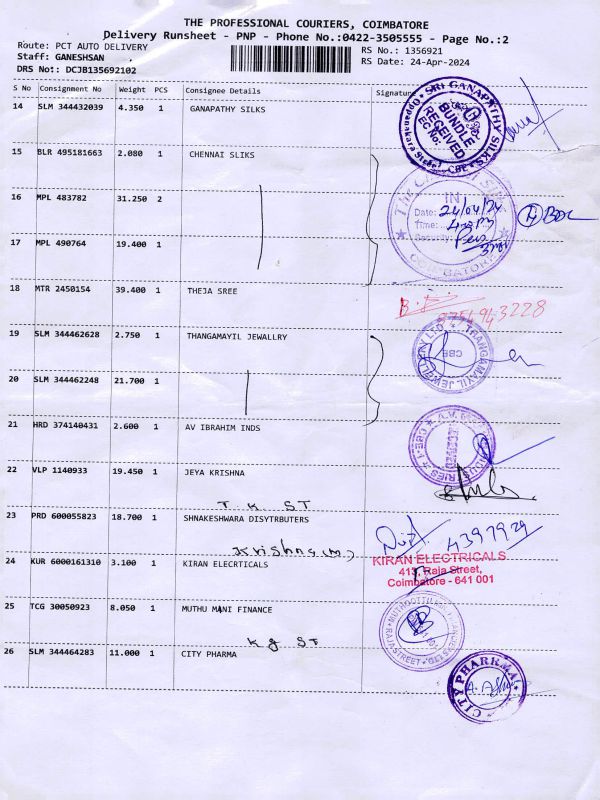 THE PROFESSIONAL COURIERS, COIMBATORE
Delivery Runsheet - PNP - Phone No.:0422-3505555 - Page No.:2
Route: PCT AUTO DELIVERY
RS No.: 1356921
Staff: GANESHSAN
RS Date: 24-Apr-2024
DRS No!: DCJB135692102
S No Consignment No Weight PCS Consignee Details Signature
14 SLM 344432039 4.350 1 GANAPATHY SILKS
SRI GANAPATHY SILKS
BUNDLE
RECEIVED
CBE
15 BLR 495181663 2.080 1 CHENNAI SLIKS
16 MPL 483782 31.250 2
IN
Date: 24/04/24
Time:
Security:
COIMBATORE
17 MPL 490764 19.400 1
18 MTR 2450154 39.400 1 THEJA SREE
19 SLM 344462628 2.750 1 THANGAMAYIL JEWALLRY
THANGAMAYIL JEWELLERY LTD
CBE
20 SLM 344462248 21.700 1
21 HRD 374140431 2.600 1 AV IBRAHIM INDS
22 VLP 1140933 19.450 1 JEYA KRISHNA
T K ST
23 PRD 600055823 18.700 1 SHNAKESHWARA DISYTRBUTERS
Krishna (M)
24 KUR 6000161310 3.100 1 KIRAN ELECRTICALS
KIRAN ELECTRICALS
413, Raja Street,
Coimbatore - 641 001
25 TCG 30050923 8.050 1 MUTHU MANI FINANCE
RAJA STREET
K G ST
26 SLM 344464283 11.000 1 CITY PHARMA
CITY PHARMA